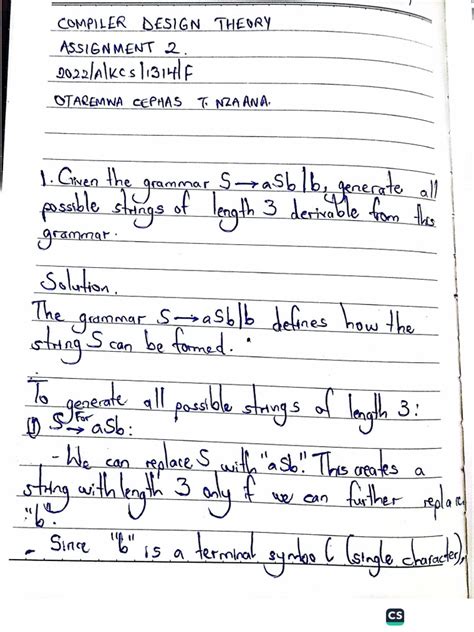 COMPILER DESIGN THEORY
ASSIGNMENT 2.
2022/A/KCS/1314/F
OTAREMWA CEPHAS T. NZAANA.
1. Given the grammar S→aSb|b, generate all
possible strings of length 3 derivable from this
grammar.
Solution.
The grammar S→aSb|b defines how the
string S can be formed.
To generate all possible strings of length 3:
(1) For S→aSb:
- We can replace S with "aSb". This creates a
string with length 3 only if we can further replace
"b".
- Since "b" is a terminal symbol (single character),
CS